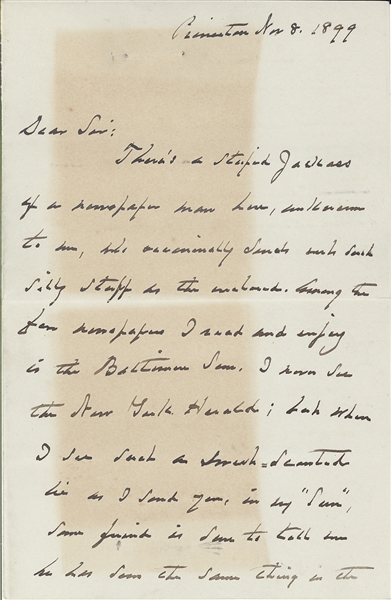 Princeton Nov 8. 1899
Dear Sir:
There's a stupid Jackass
of a newspaper man here, unknown
to me, who occasionally sends out such
silly stuff as the enclosed. Among the
few newspapers I read and enjoy
is the Baltimore Sun. I never see
the New York Herald; but when
I see such a skunk-scented
lie as I send you, in my "Sun",
some friend is sure to tell me
he has seen the same thing in the